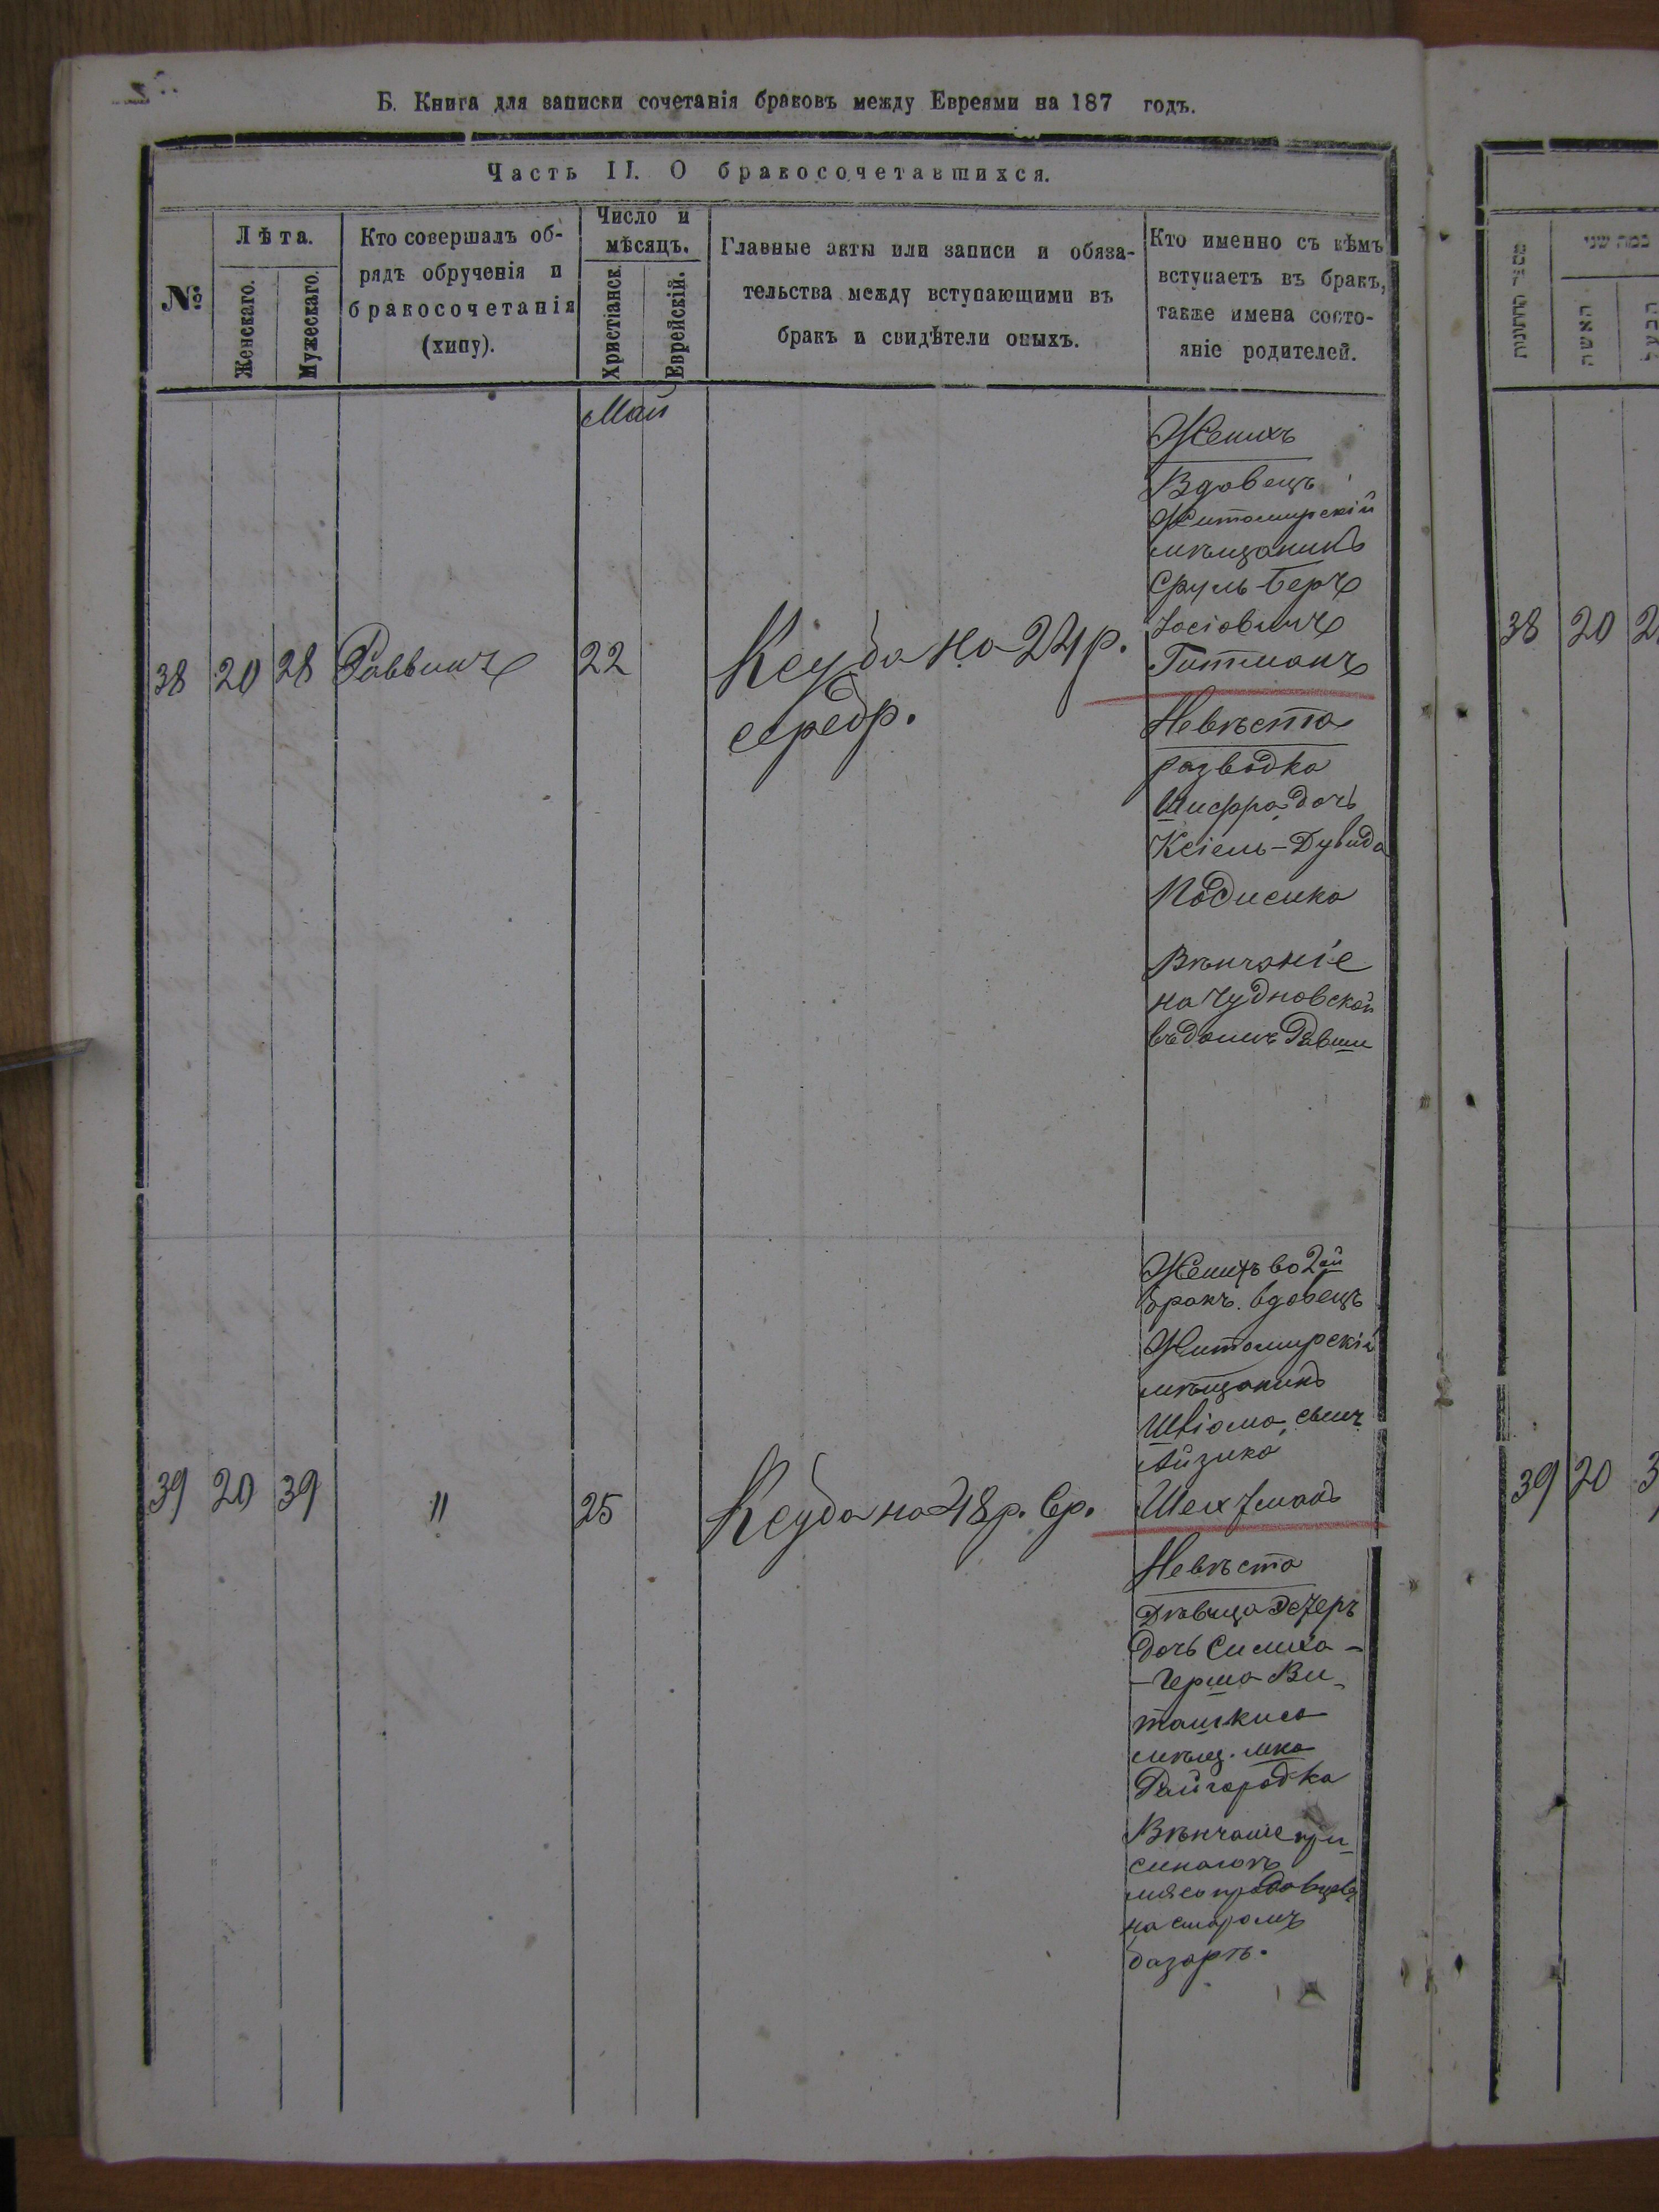 Б. Книга для записки сочетанія браковъ между Евреями на 187 годъ.
Часть II. О бракосочетавшихся.
№
Лѣта.
Женскаго.
Мужескаго.
Кто совершалъ об-
рядъ обрученія и
бракосочетанія
(хипу).
Число и
мѣсяцъ.
Христіанск.
Еврейскій.
Главные акты или записи и обяза-
тельства между вступающими въ
бракъ и свидѣтели оныхъ.
Кто именно съ кѣмъ
вступаетъ въ бракъ,
также имена состо-
яніе родителей.
Май
38 20 28 Раввинъ 22
на 24 р.
серебр.
Женихъ
Вдовецъ
Житомирскій
мѣщанинъ
Сруль-Беръ
Іосіовичъ
Гитманъ
Невѣста
разводка
Шифра дочь
Ксіель-Дувида
Вѣнчаніе
на Чудновской
въ домѣ
39 20 39 " 25
на 48 р. ср.
Женихъ во 2ой
бракъ. вдовецъ
Житомирскій
мѣщанинъ
сынъ
Айзика
Невѣста
Дѣвица
дочь Симха-
-Герша Ви-
мѣщ. мка
Райгородка
Вѣнчаніе при
синагогѣ
мясопродавцевъ
на старомъ
базарѣ.
מספר החתונות
כמה שני
האשה
הבעל
38 20 2
39 20 3